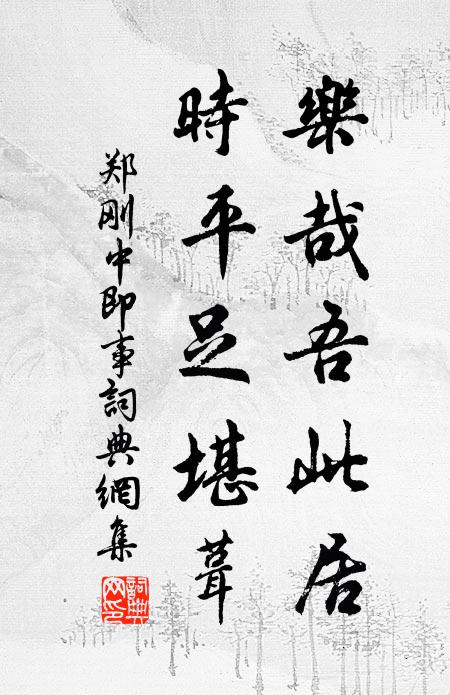 樂哉吾此居
時平足堪葺
郑刚中即事詞典網集
詞典
网印